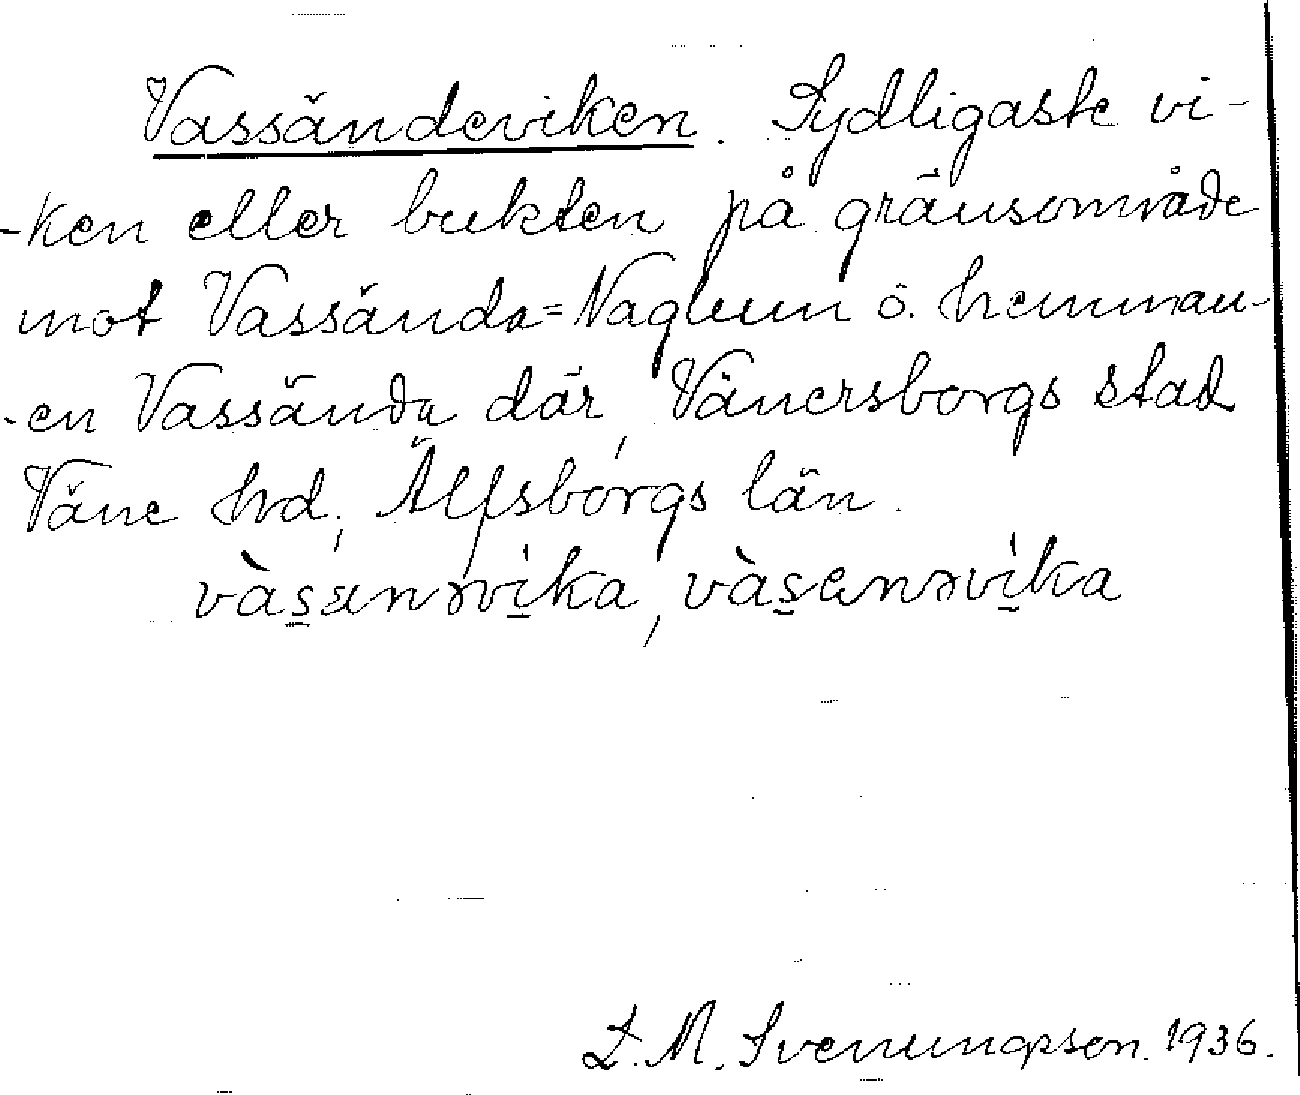 Vassändeviken. Sydligaste vi-
-ken eller bukten på gränsområde
mot Vassända=Naglum o. hemman-
-en Vassända där, Vänersborgs stad
Väne hd, Älfsborgs län.
vàs̱ɛnərvi̱ka, vàs̱ɛnərvi̱ka
L. M. Svenungsson. 1936.